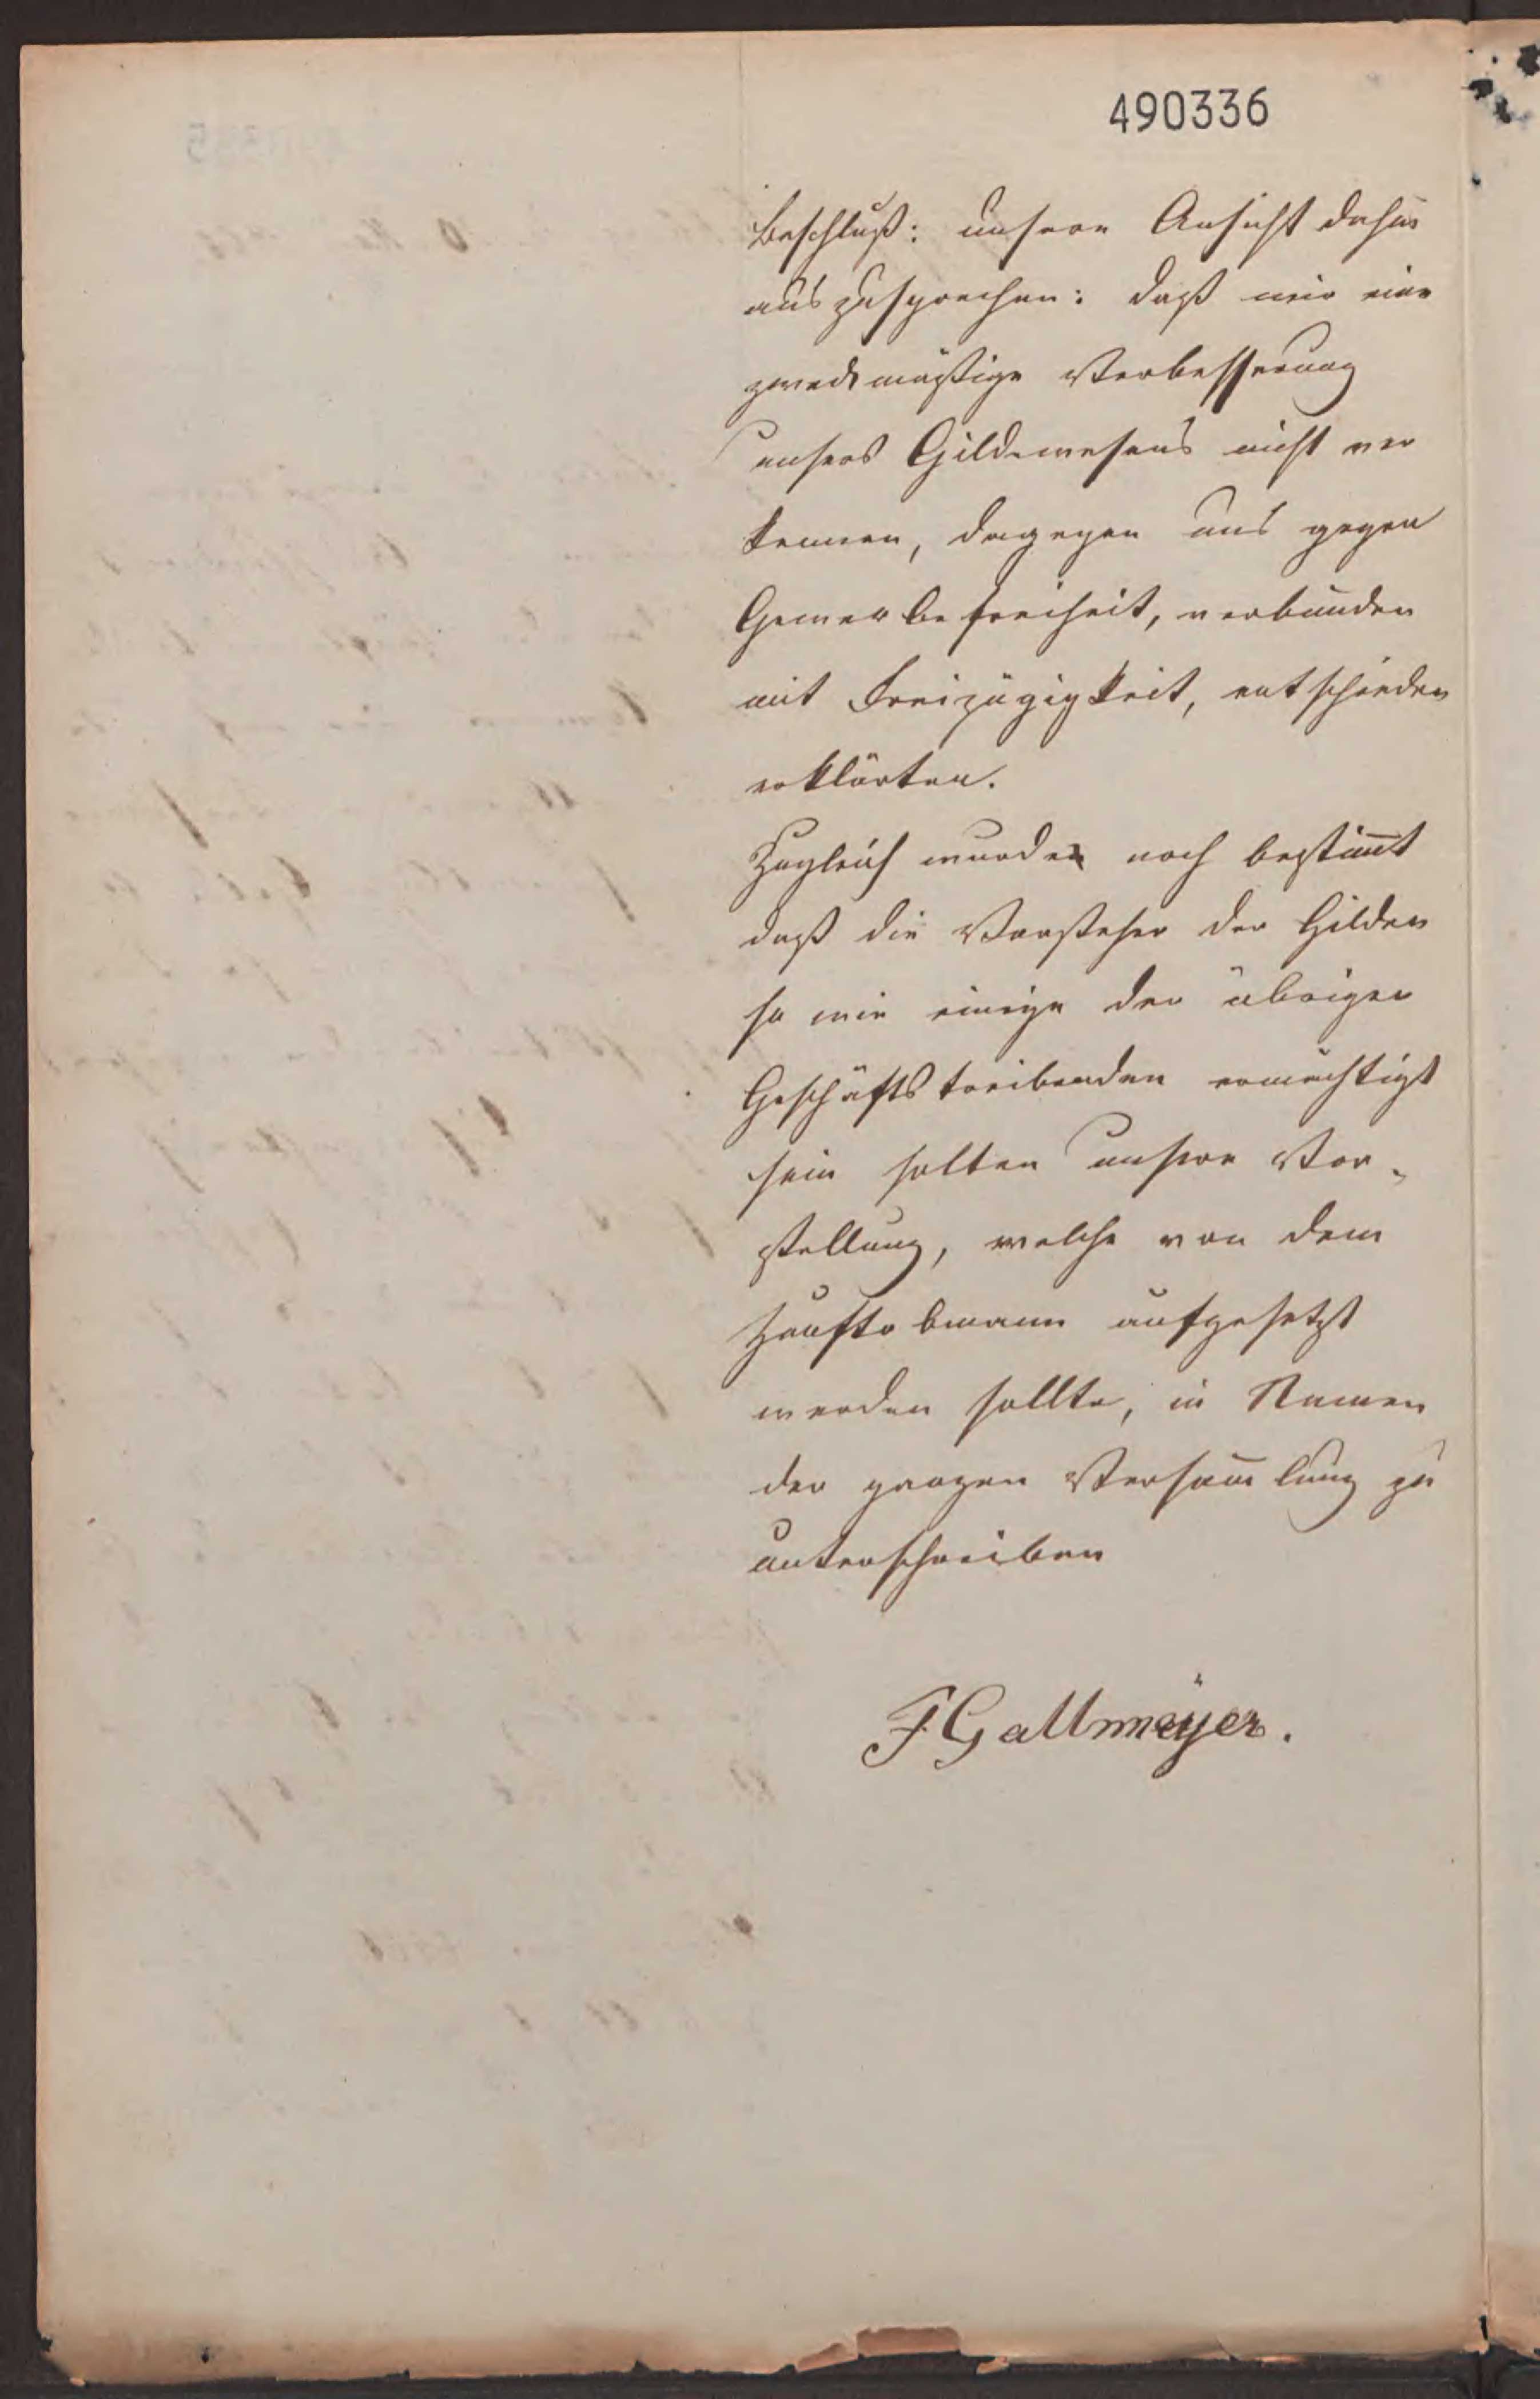 490336
Beschluß: unsere Ansicht dahin
auszusprechen: daß wir eine
zweckmäßige Verbesserung
unsers Gildewesens nicht ver
kennen, dagegen uns gegen
Gewerbefreiheit, verbunden
mit Freizügigkeit, entschieden
erklärten.
Zugleich wurde noch bestim̄t
daß die Vorsteher der Gilden
so wie einige der übrigen
Geschäftstreibenden ermächtigt
sein solten unsere Vor-
stellung, welche von dem
Zunftobmann aufgesetzt
werden sollte, in Namen
der ganzen Versam̄lung zu
unterschreiben
F Gallmeÿer.